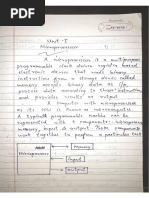 Unit - I
Microprocessor
A microprocessor is a multipurpose
programmable clock driven register based
electronic device that reads binary
instruction from a storage device called
memory, accepts binary data as i/p,
process data according to those instructions
and provides results as output.
A computer with microprocessor as
its CPU is known as microcomputer.
A typical programmable machine can be
represented with 4 components: microprocessor,
memory, input & output. These components
work together to perform a particular task
Microprocessor
Memory
Input
Output